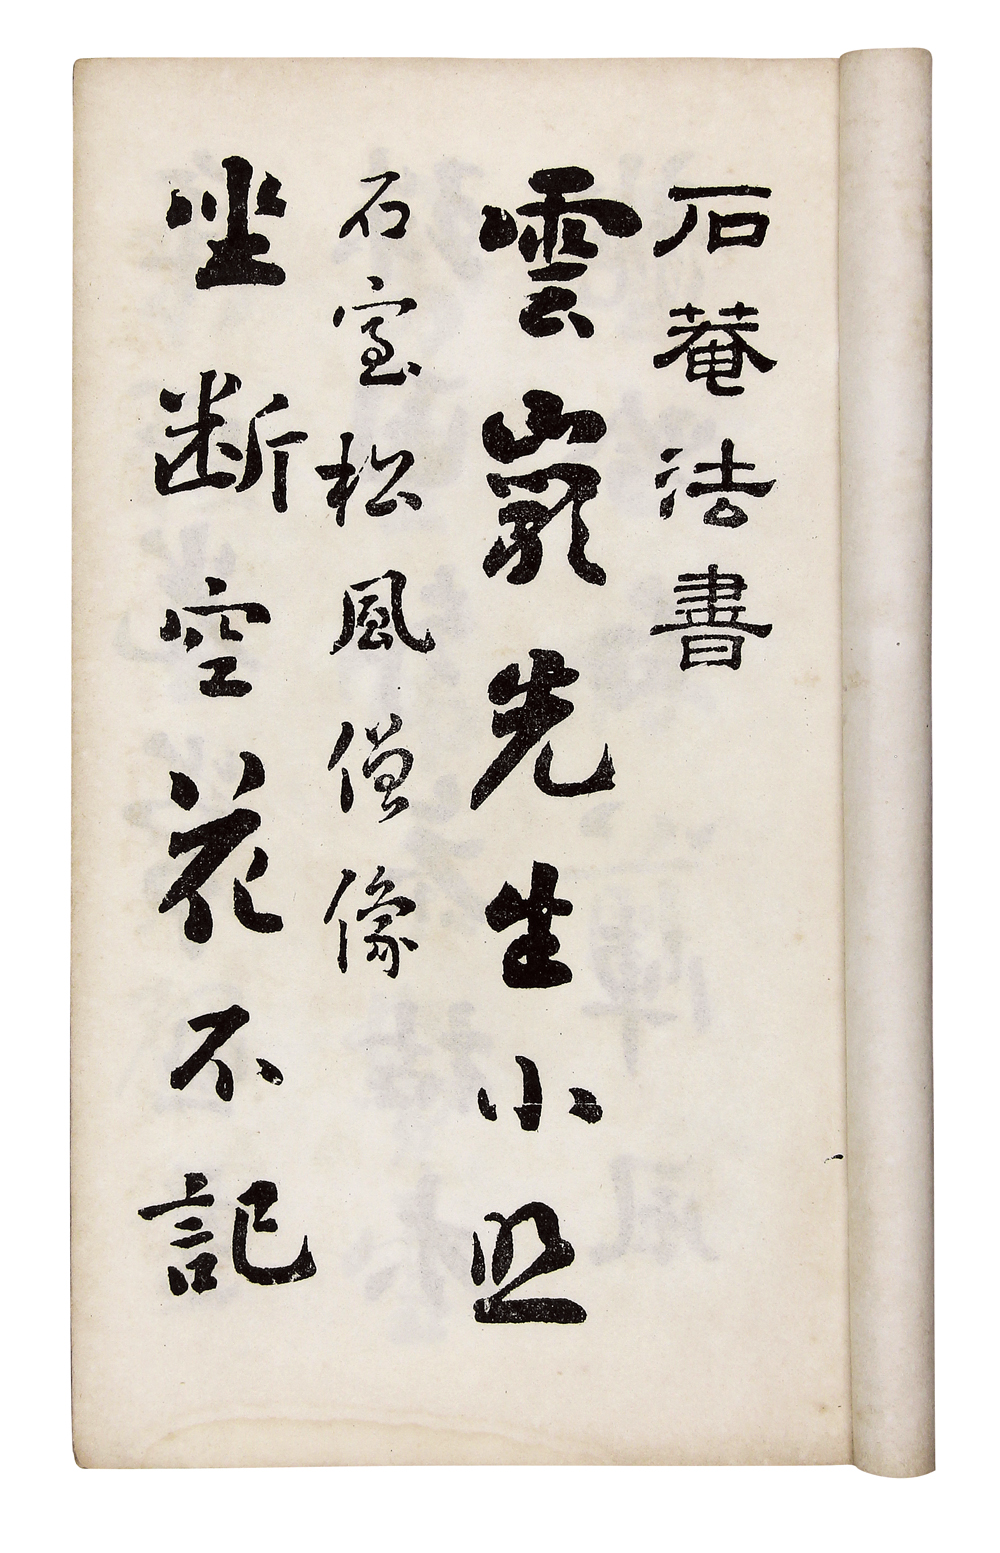 石菴法書
雲巖先生小照
石室松風僧像
坐斷空花不記